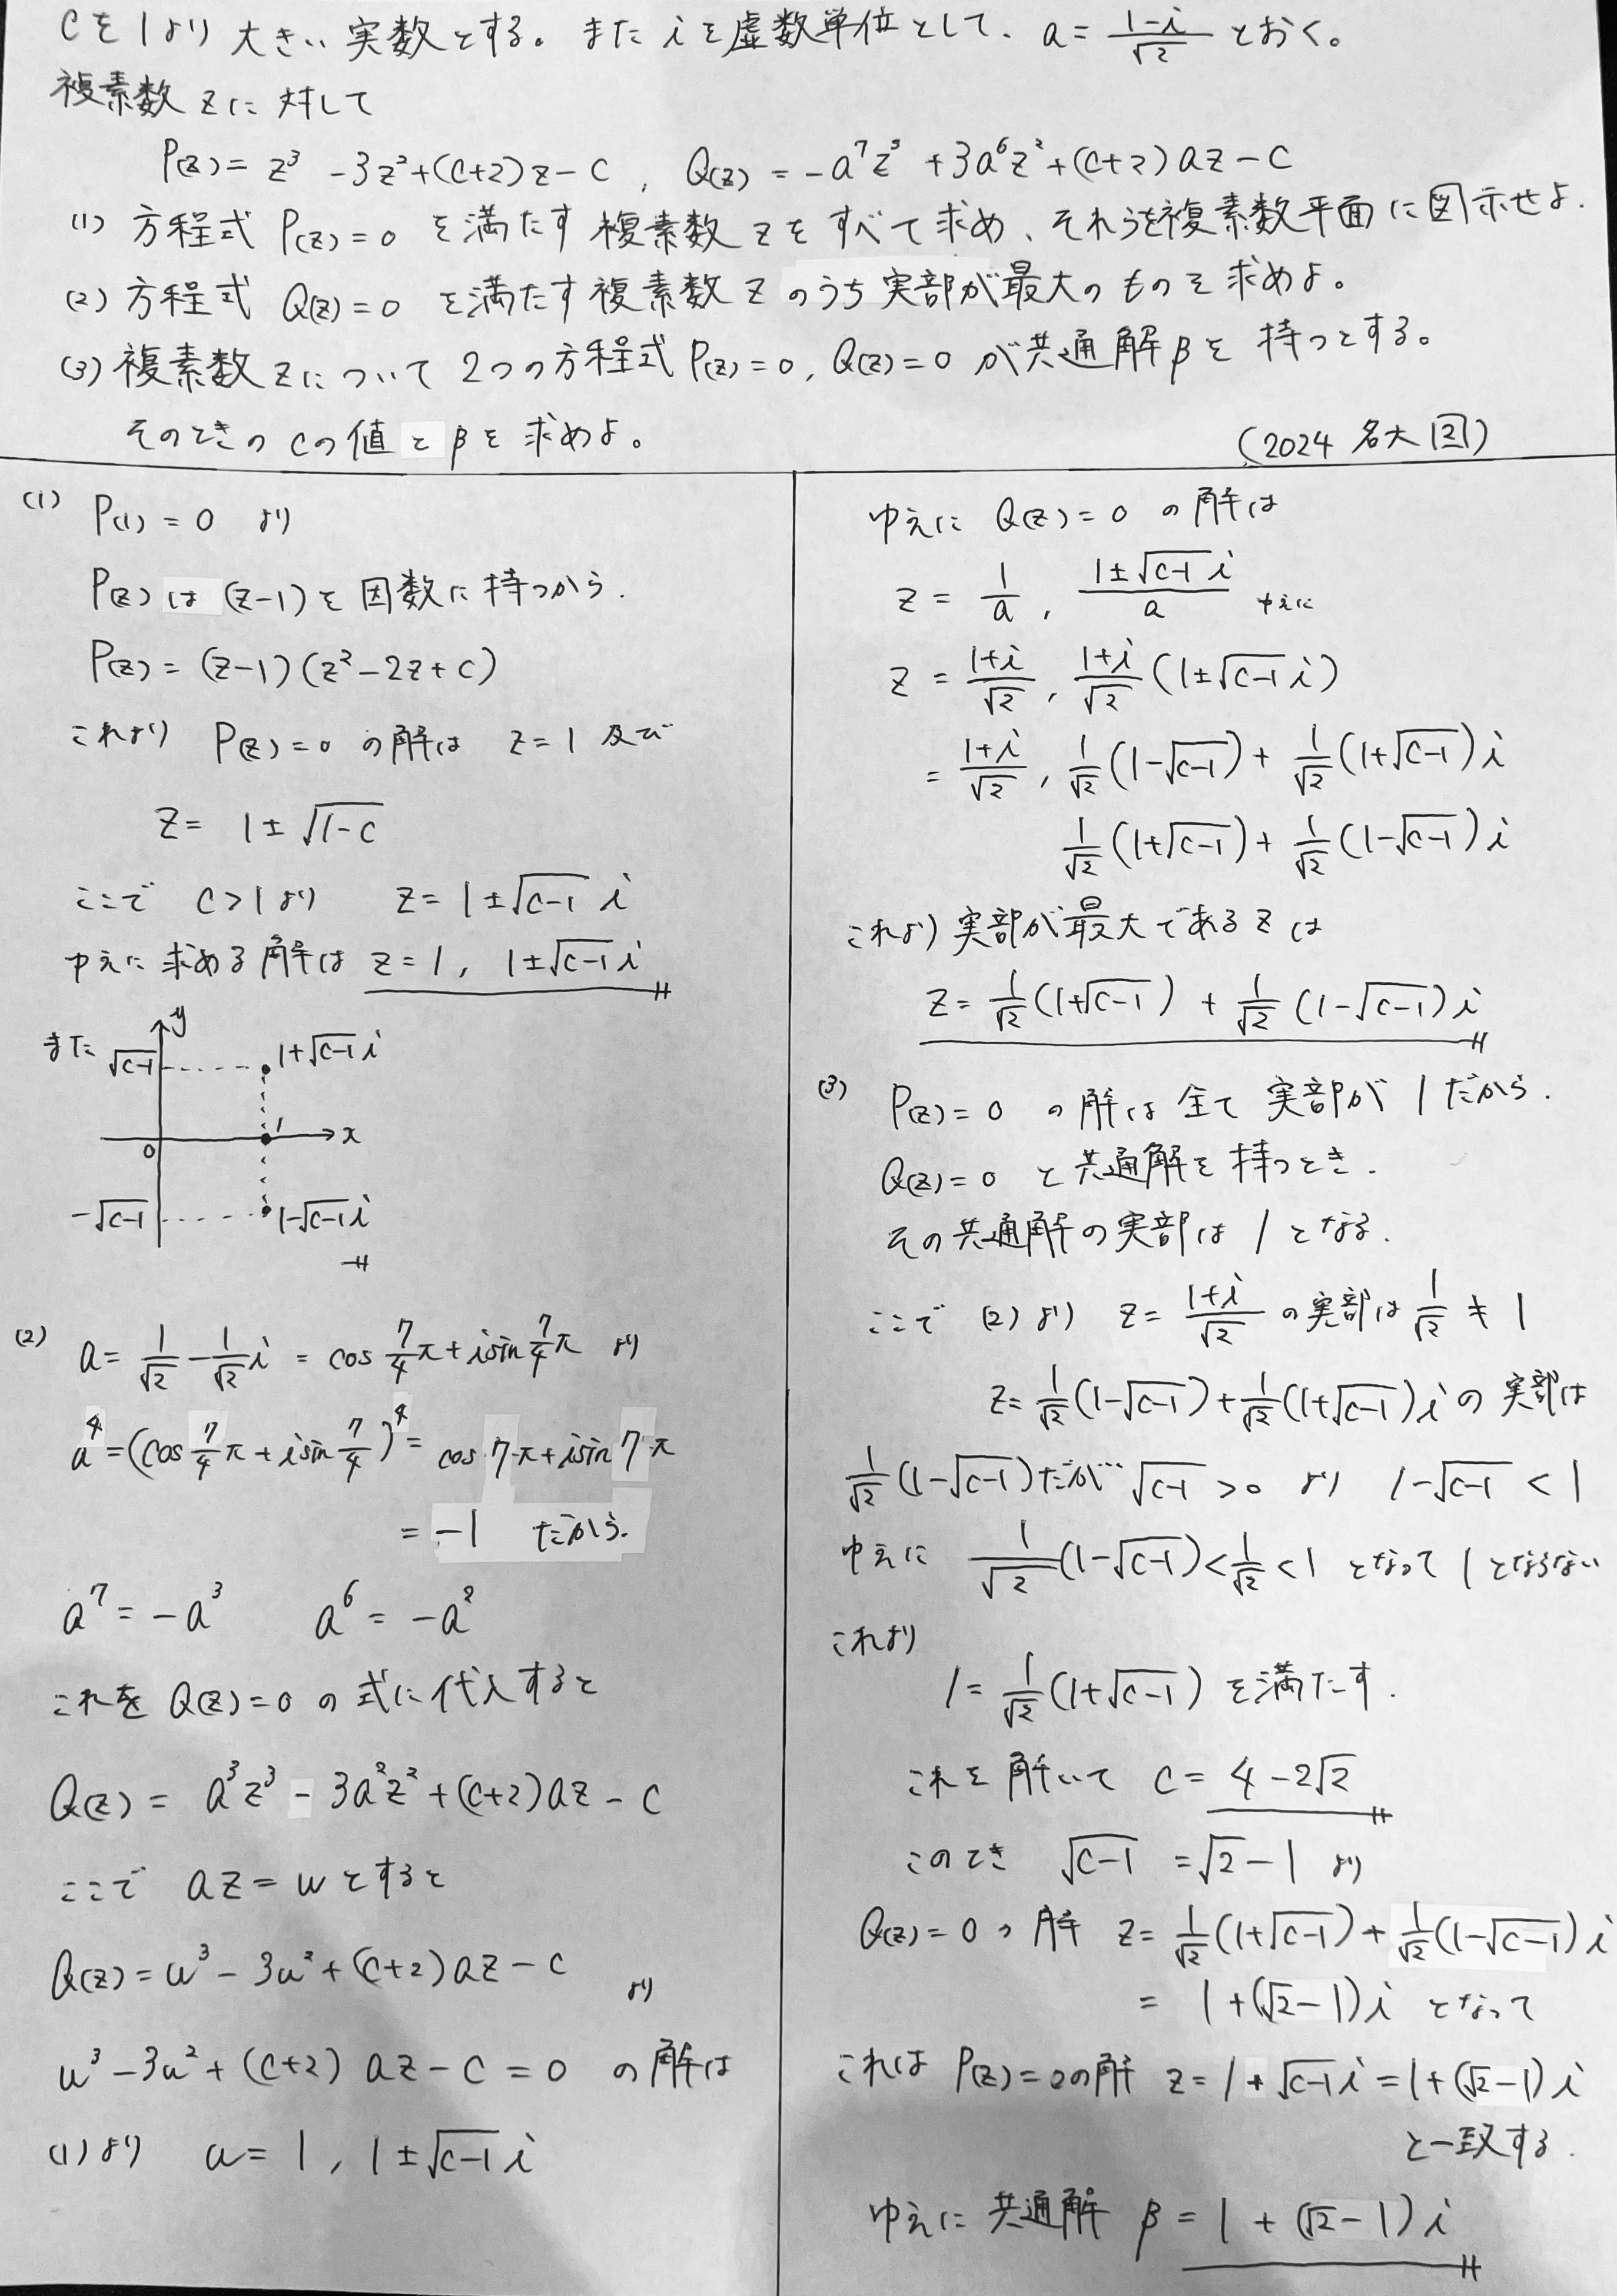 Cを1より大きい実数とする。また iを虚数単位として、a = (1-i)/√2 とおく。
複素数 zに対して
P(z) = z³ - 3z² + (C+2)z - C , Q(z) = -a⁷z³ + 3a⁶z² + (C+2)az - C
(1) 方程式 P(z)=0 を満たす複素数 zをすべて求め、それらを複素数平面に図示せよ.
(2) 方程式 Q(z)=0 を満たす複素数 zのうち実部が最大のものを求めよ。
(3) 複素数 zについて 2つの方程式 P(z)=0, Q(z)=0 が共通解βを持つとする。
そのときの Cの値とβを求めよ。
(2024 名大 [2])
(1) P(1) = 0 より
P(z) は (z-1) を因数に持つから.
P(z) = (z-1)(z²-2z+C)
これより P(z)=0 の解は z=1 及び
z = 1±√(1-C)
ここで C>1より z=1±√(C-1) i
ゆえに求める解は z=1, 1±√(C-1) i
また
y
√(C-1)
1+√(C-1) i
0
1
x
-√(C-1)
1-√(C-1) i
(2) a = 1/√2 - 1/√2 i = cos 7/4 π + i sin 7/4 π より
a⁴ = (cos 7/4 π + i sin 7/4)⁴ = cos 7π + i sin 7π
= -1 だから.
a⁷ = -a³ a⁶ = -a²
これを Q(z)=0 の式に代入すると
Q(z) = a³z³ - 3a²z² + (C+2)az - C
ここで az = u とすると
Q(z) = u³ - 3u² + (C+2)az - C より
u³ - 3u² + (C+2) az - C = 0 の解は
(1)より u = 1, 1±√(C-1) i
ゆえに Q(z)=0 の解は
z = 1/a , (1±√(C-1) i)/a ゆえに
z = (1+i)/√2 , (1+i)/√2 (1±√(C-1) i)
= (1+i)/√2 , 1/√2 (1-√(C-1)) + 1/√2 (1+√(C-1)) i
1/√2 (1+√(C-1)) + 1/√2 (1-√(C-1)) i
これより実部が最大である zは
z = 1/√2 (1+√(C-1)) + 1/√2 (1-√(C-1)) i
(3) P(z)=0 の解は全て実部が1だから.
Q(z)=0 と共通解を持つとき.
その共通解の実部は1となる.
ここで (2)より z = (1+i)/√2 の実部は 1/√2 ≠ 1
z = 1/√2 (1-√(C-1)) + 1/√2 (1+√(C-1)) i の実部は
1/√2 (1-√(C-1)) だが √(C-1) > 0 より 1-√(C-1) < 1
ゆえに 1/√2 (1-√(C-1)) < 1/√2 < 1 となって1とならない
これより
1 = 1/√2 (1+√(C-1)) を満たす.
これを解いて C = 4-2√2
このとき √(C-1) = √2-1 より
Q(z)=0の解 z = 1/√2 (1+√(C-1)) + 1/√2 (1-√(C-1)) i
= 1+(√2-1) i となって
これは P(z)=0の解 z = 1+√(C-1) i = 1+(√2-1) i
と一致する.
ゆえに共通解 β = 1+(√2-1) i